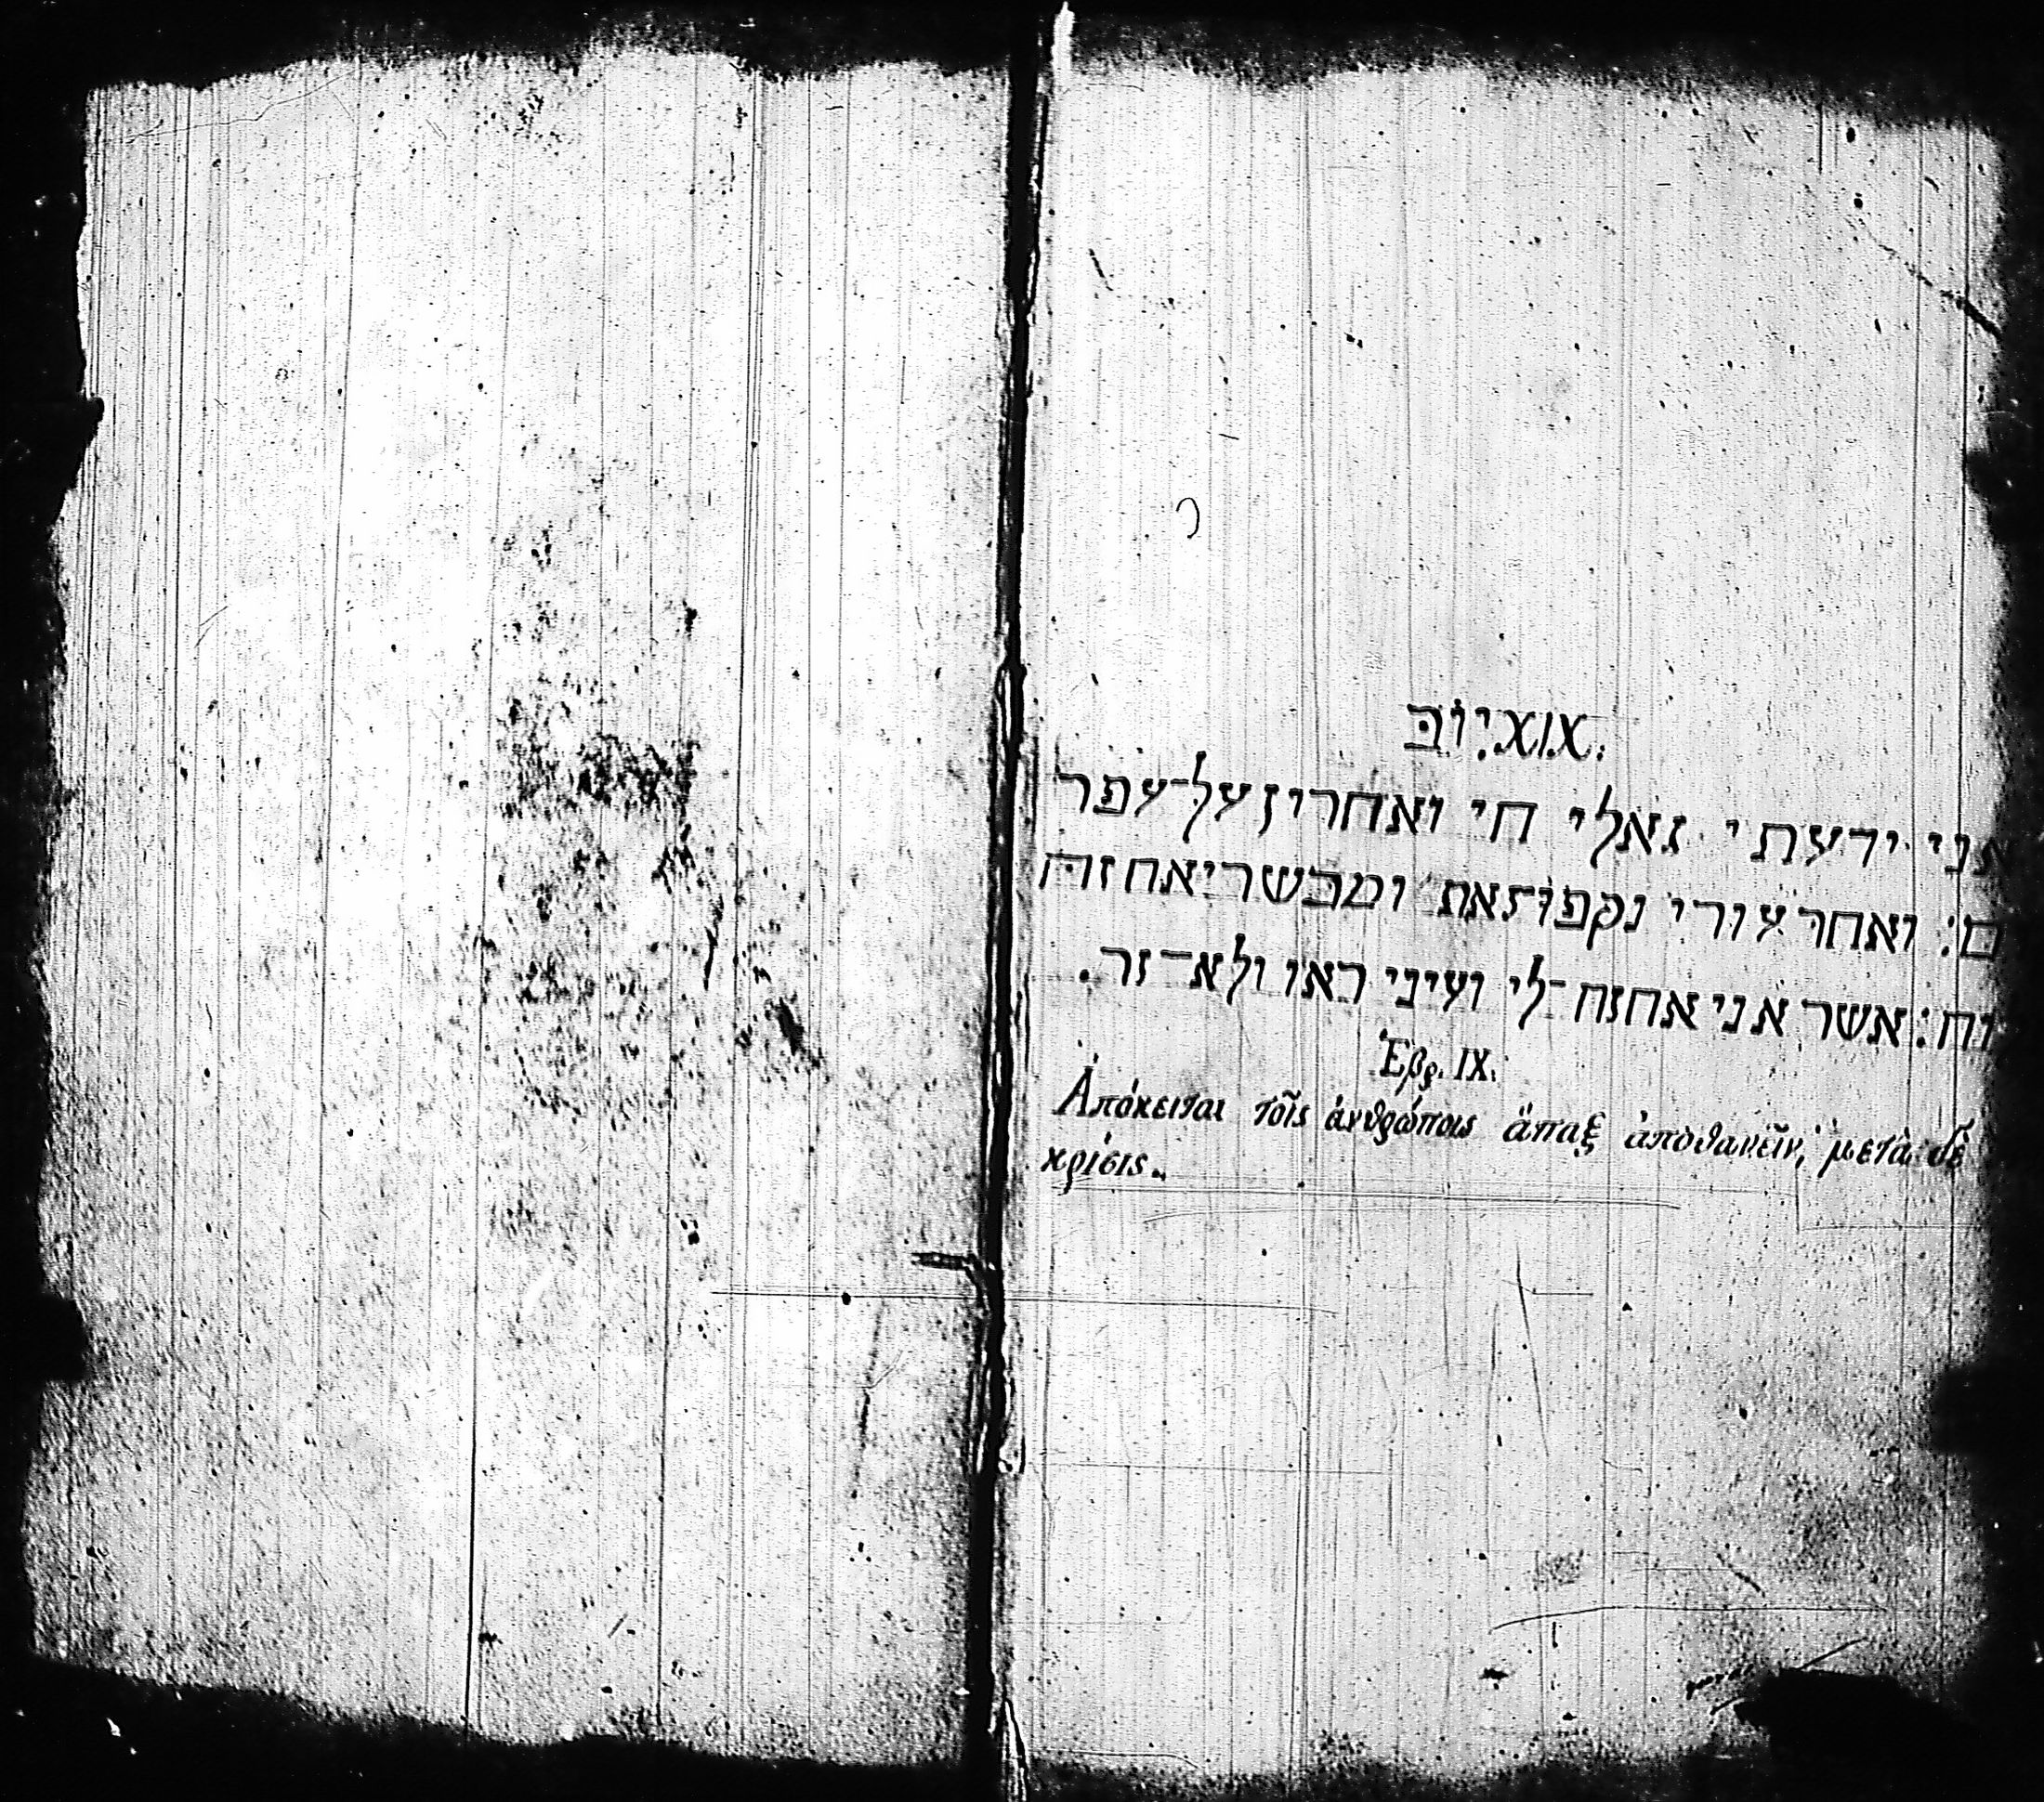 XIX. יוֹבּ
אני ידעתי גאלי חי ואחרין על־עפר
ם: ואחר עורי נקפו־זאת ומבשרי אחזה
וה: אשר אני אחזה־לי ועיני ראו ולא־זר.
Ἑβρ. IX.
Ἀπόκειται τοῖς ἀνθρώποις ἅπαξ ἀποθανεῖν, μετὰ δὲ
κρίσις.